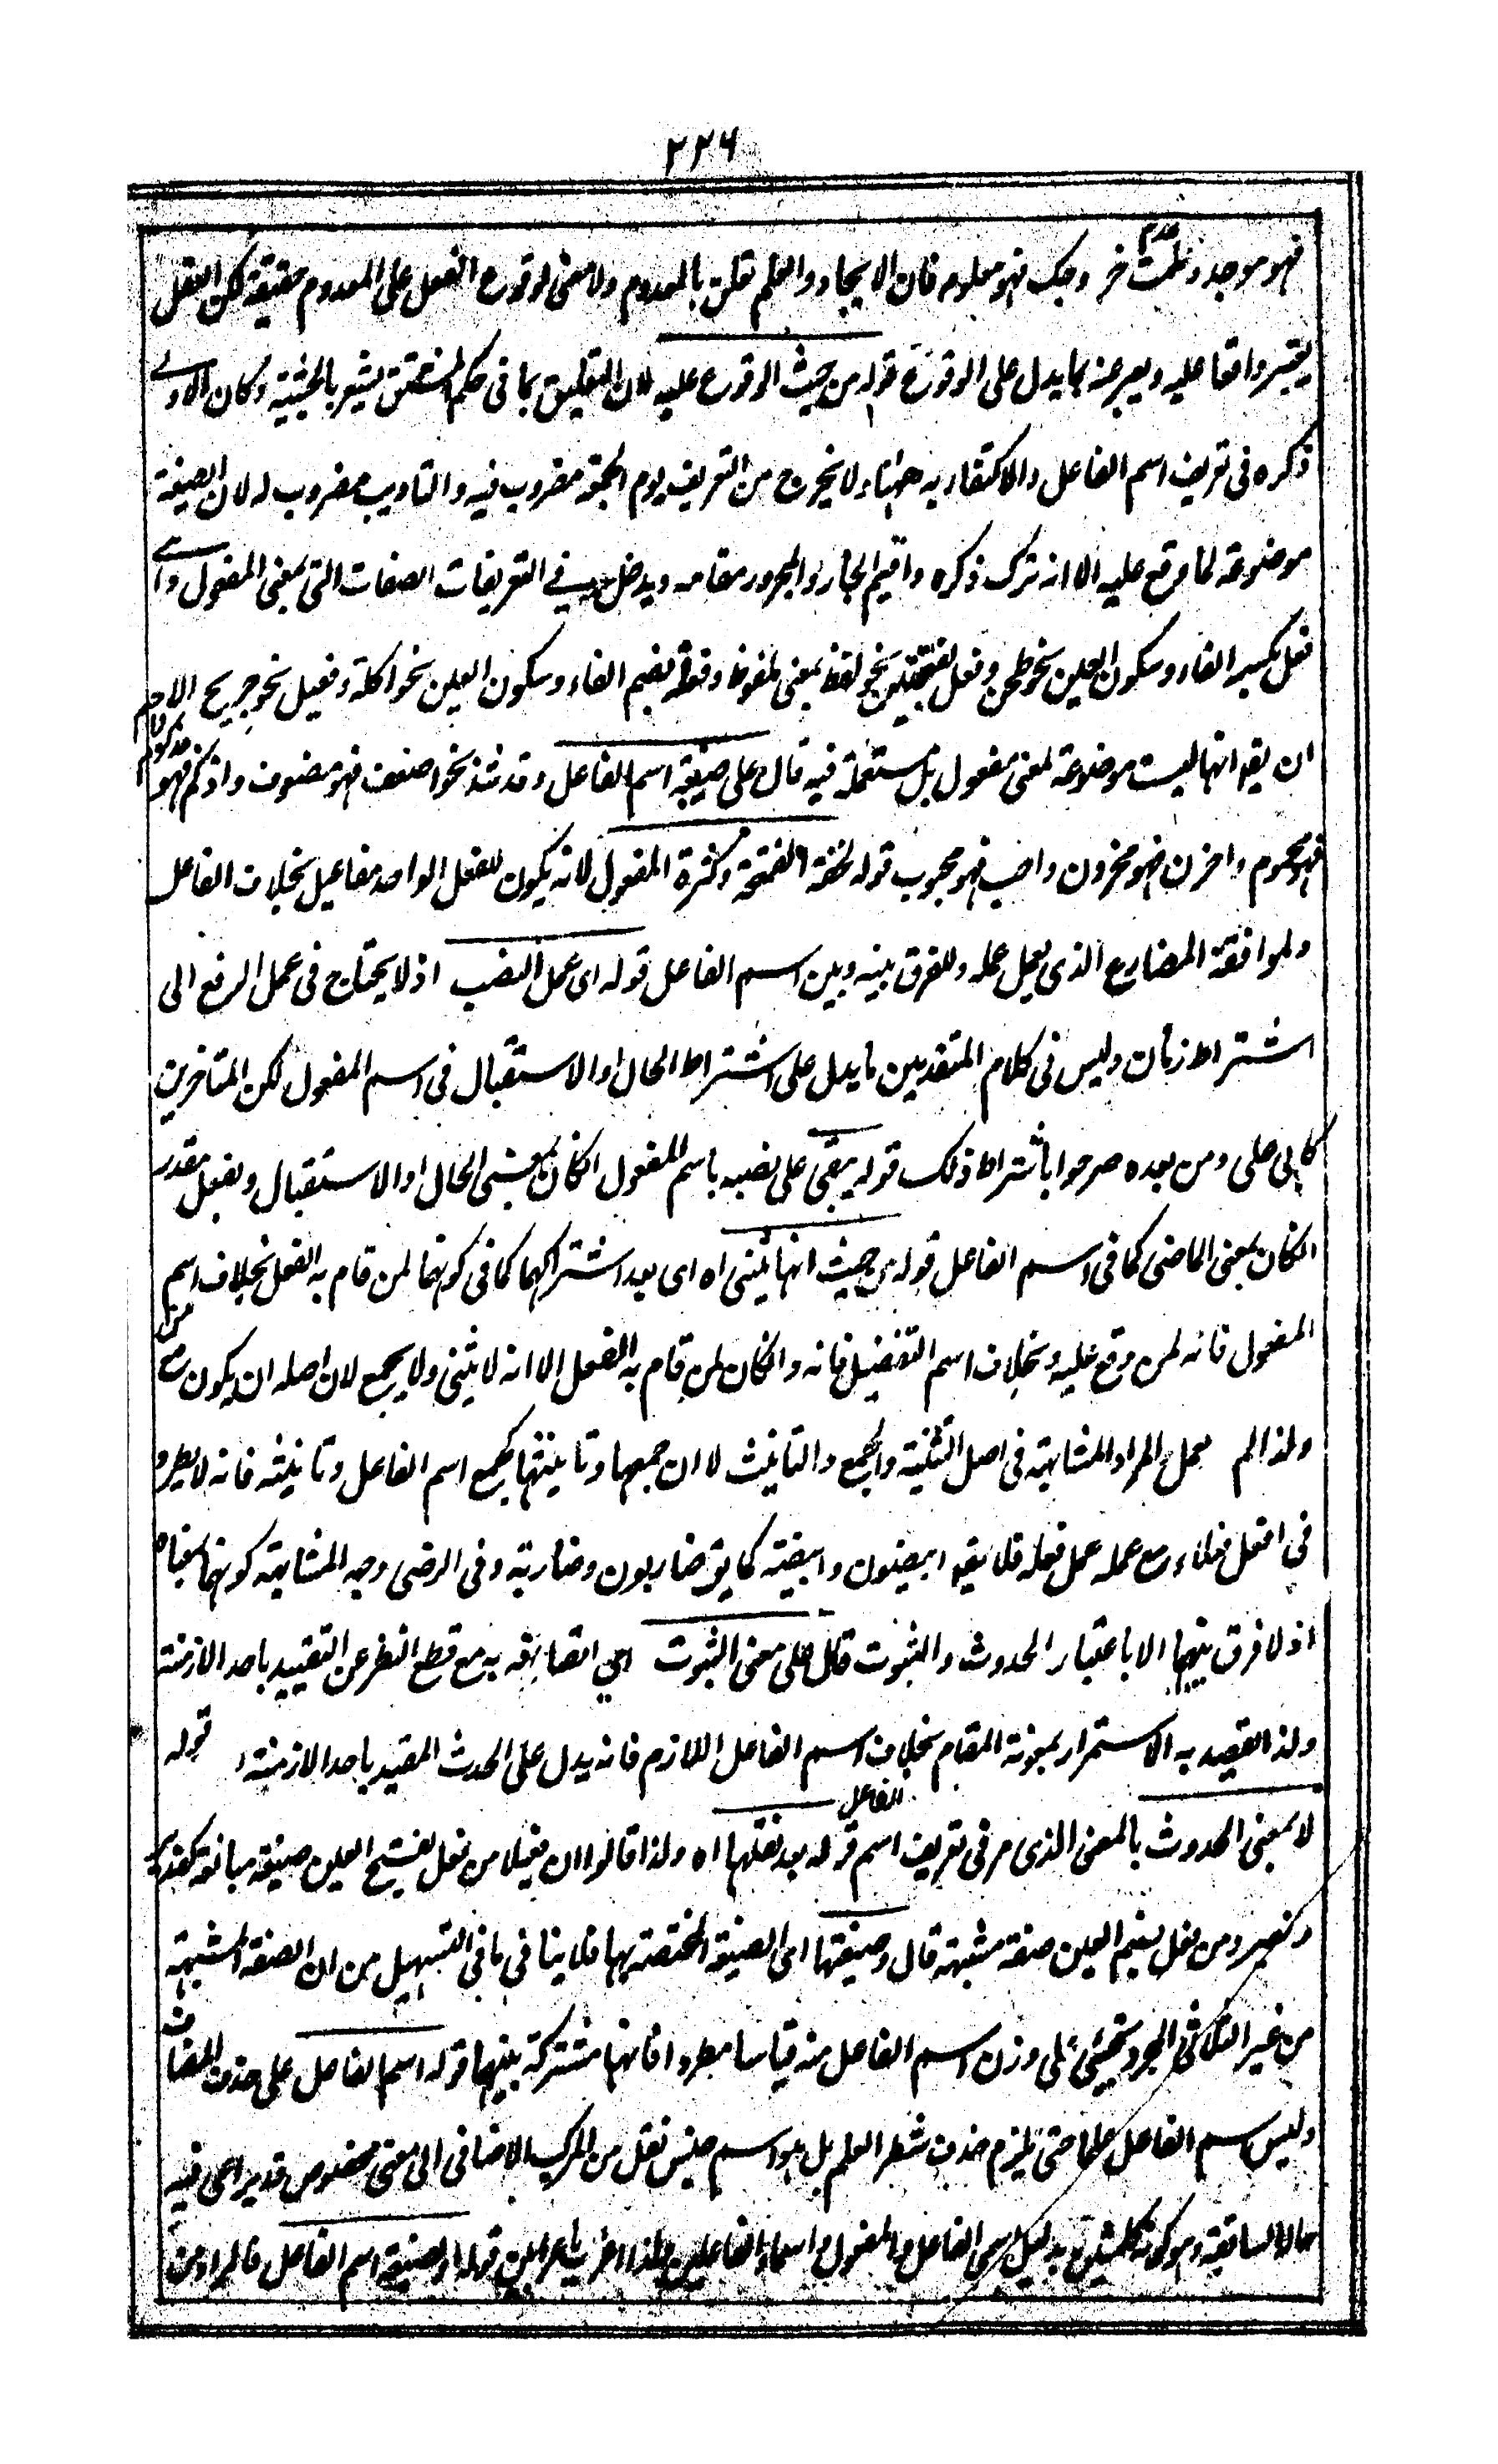 ٢٢٦
فهو موجد وعلمت عدم خروجك فهو معلوم فان الايجاد والعلم تعلق بالمعدوم ولا معنى لوقوع الفعل على المعدوم حقيقة لكن العقل
يعتبر واقعا عليه ويعبر عنه بما يدل على الوقوع قوله من حيث الوقوع عليه لان التعليق بما فى حكم المشتق يشير بالحيثية وكان الاولے
ذكره فى تعريف اسم الفاعل والاكتفاء به ههنا ولا يخرج من التعريف يوم الجمعة مضروب فيه والتاديب مضروب له لان الصيغة
موضوعة لما وقع عليه الا انه ترك ذكره واقيم الجار والمجرور مقامه ويدخل فے التعريفات الصفات التى بمعنى المفعول
فعل بكسر الفاء وسكون العين نحو طحن وفعل بفتحتين نحو لفظ بمعنى ملفوظ وفعلة بضم الفاء وسكون العين نحو اكلة وفعيل نحو جريح اللهم
ان يقه انها ليست موضوعة لمعنى مفعول بل مستعملة فيه قال على صيغة اسم الفاعل وقد شذ نحو اضعف فهو مضعوف وازكم فهو مزكوم
فهو محموم واحزن فهو محزون واحب فهو محبوب قوله لخفة الفتحة وكثرة المفعول لانه يكون للفعل الواحد مفاعيل بخلاف الفاعل
ولموافقة المضارع الذى يعمل عمله وللفرق بينه وبين اسم الفاعل قوله اى عمل النصب اذ لا يحتاج فى عمل الرفع الى
اشتراط زمان وليس فى كلام المتقدمين ما يدل على اشتراط الحال او الاستقبال فى اسم المفعول لكن المتاخرين
كابى على ومن بعده صرحوا باشتراط ذلك قوله يبقى على نصبه باسم المفعول انكان بمعنى الحال او الاستقبال وبفعل مقدر
انكان بمعنى الماضى كما فى اسم الفاعل قوله من حيث انها تثنى اه اى بعد اشتراكهما كما فى كونهما لمن قام به الفعل بخلاف اسم
المفعول فانه لمن وقع عليه وبخلاف اسم التفضيل فانه وانكان لمن قام به الفعل الا انه لا يثنى ولا يجمع لان اصله ان يكون مع من
ولذا لم يعمل المراد المشابهة فى اصل التثنية والجمع والتانيث لا ان جمعها وتانيثها كجمع اسم الفاعل وتانيثه فانه لا يطرد
فى افعل فعلاء مع عمله عمل فعله فلا يقه ابيضون وابيضة كما يق ضاربون وضاربة وفى الرضى وجه المشابهة كونهما بمعناه
اذ لا فرق بينهما الا باعتبار الحدوث والثبوت قال على معنى الثبوت اى اتصافه به مع قطع النظر عن التقييد باحد الازمنة
ولذا القصد به الاستمرار بمعونة المقام بخلاف اسم الفاعل اللازم فانه يدل على الحدث المقيد باحد الازمنة قوله
لا بمعنى الحدوث بالمعنى الذى مر فى تعريف اسم الفاعل قوله بعد نقلها اه ولذا قالوا ان فعيلا من فعل بفتح العين صيغة مبالغة كقدير
ونصير ومن فعل بضم العين صفة مشبهة قال وصيغتها اى الصيغة المختصة بها فلا ينافى ما فى التسهيل من ان الصفة المشبهة
من غير الثلاثى المجرد تجيئى على وزن اسم الفاعل منه قياسا مطردا فانها مشتركة بينهما قوله اسم الفاعل على حذف المضاف
وليس اسم الفاعل علما حتى يلزم حذف شطر العلم بل هو اسم جنس نقل من المركب الاضافى الى معنى مخصوص قد يراعى فيه
حاله السابقة وهو كونه كلمتين بدليل اسمى الفاعل والمفعول واسماء الفاعلين ولذا اعرب باعرابين قوله او لصيغة اسم الفاعل فالمراد من